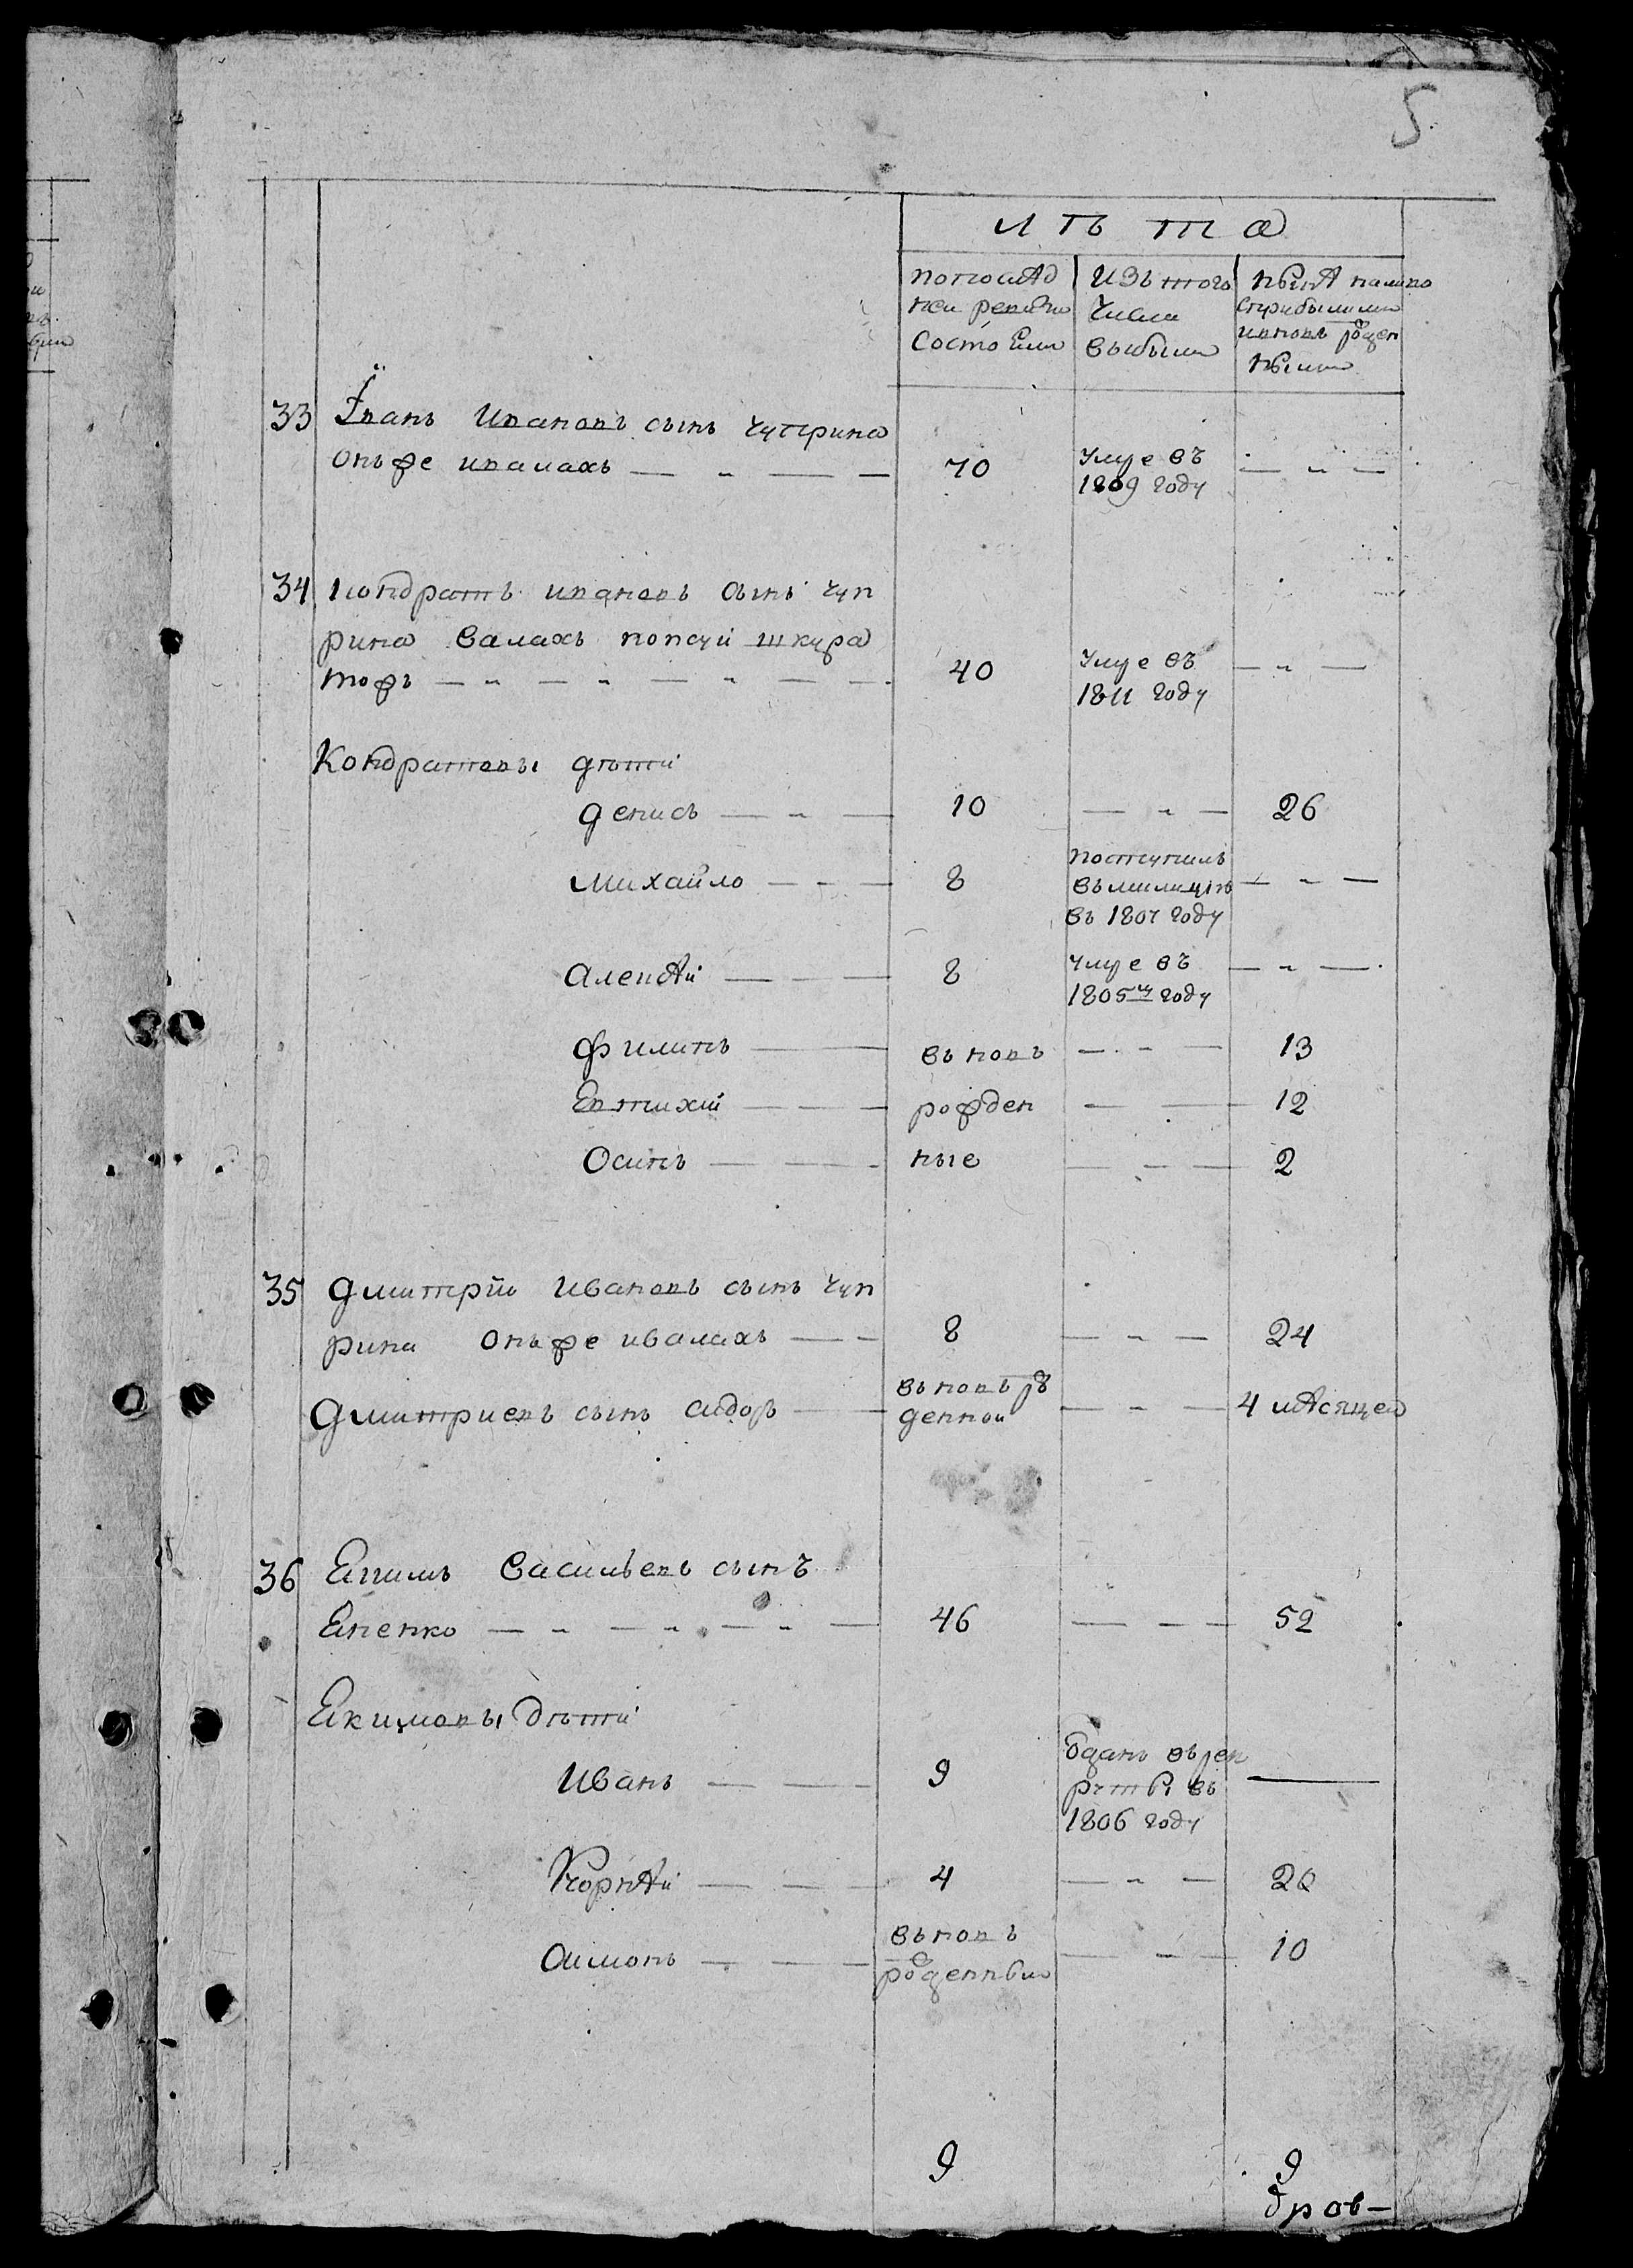 5.
лѣта
попослѣд
ней ревизіи
состояли
изъ того
числа
выбыли
нынѣ налицо
сприбылыми
ивновь рожден
ными
33 Iванъ Ивановъ сынъ чуприна
онъже ивалахъ
70
умре въ
1809 году
34 Кондратъ ивановъ сынъ чуп
рина валахъ попсуй шкура
тожъ
40
умре въ
1811 году
Кондратовы дѣти
денисъ 10 26
михайло 8
поступилъ
вмилицію
въ 1807 году
алексѣй 8
умре въ
1805м году
филипъ вновь 13
Евтихій рожден 12
Осипъ ные 2
35 дмитрій Ивановъ сынъ чуп
рина онъже ивалахъ 8 24
дмитриевъ сынъ сидоръ
вновь рож
денной
4 мѣсяцей
36 Екимъ васильевъ сынъ
Ененко 46 52
Екимовы дѣти
иванъ 9
отданъ врек
руты въ
1806 году
Корнѣй 4 20
симонъ
вновь
рожденный
10
9 9
дров-